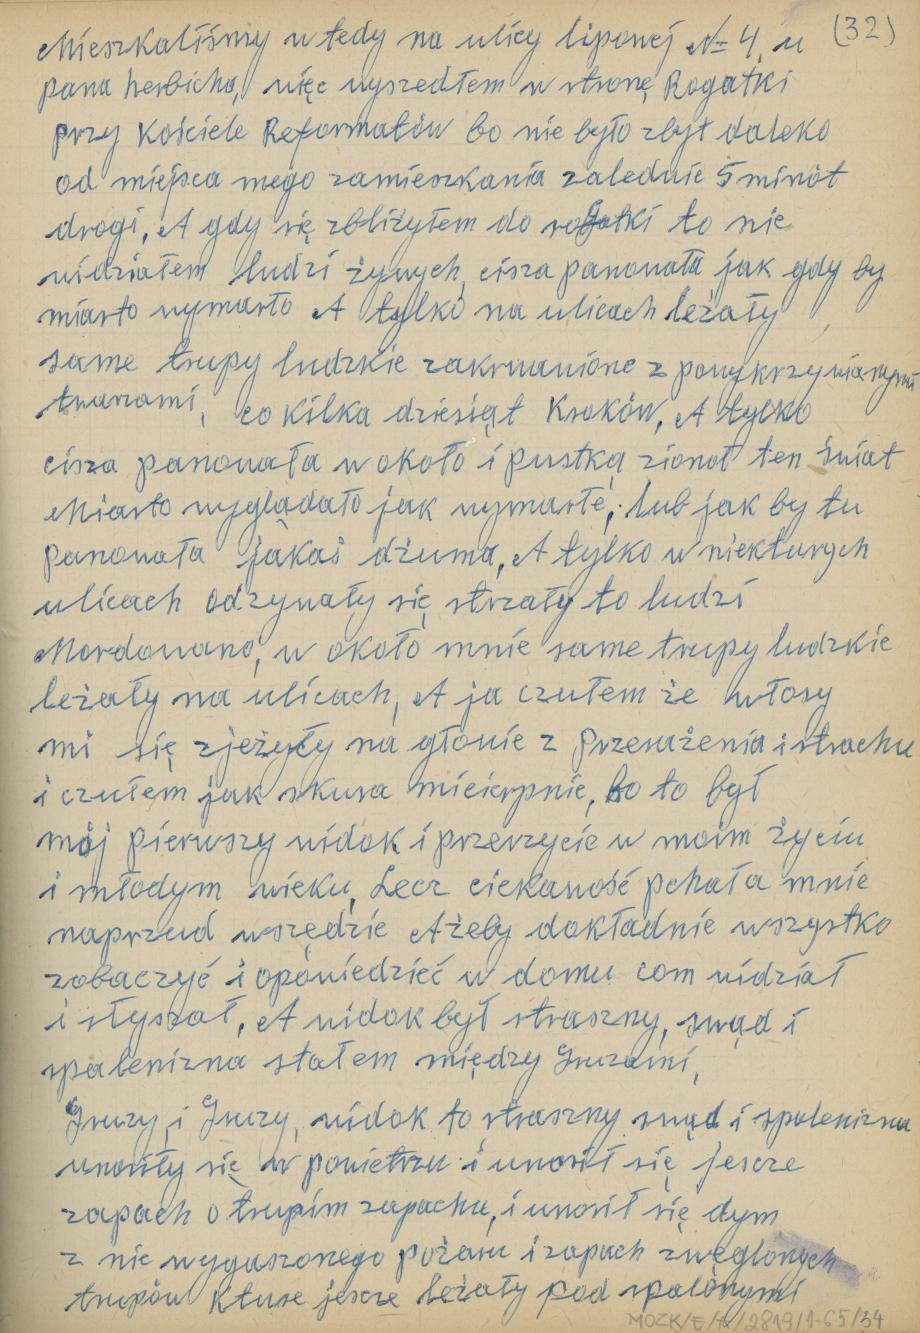 (32)
Mieszkaliśmy wtedy na ulicy lipowej № 4, u
pana herbicha, więc wyszedłem w stronę Rogatki
przy Kościele Reformatów bo nie było zbyt daleko
od miejsca mego zamieszkania zalednie 5 minót
drogi, A gdy się zbliżyłem do rogatki to nie
widziałem ludzi żywych, cisza panowała jak gdy by
miasto wymarło A tylko na ulicach leżały
same trupy ludzkie zakrwanione z powykrzywianymi
twarzami, co kilka dziesiąt Kroków, A tylko
cisza panowała w około i pustką zionoł ten świat
Miasto wyglądało jak wymarłe, lub jak by tu
panowała jakaś dżuma, A tylko w niekturych
ulicach odzywały się strzały to ludzi
Mordowano, w około mnie same trupy ludzkie
leżały na ulicach, A ja czułem że włosy
mi się zjeżyły na głowie z przerażenia i strachu
i czułem jak skura mi cierpnie, bo to był
mój pierwszy widok i przerzycie w moim życiu
i młodym wieku, Lecz ciekawość pchała mnie
naprzud wszędzie Ażeby dokładnie wszystko
zobaczyć i opowiedzieć w domu com widział
i słyszał, A widok był straszny, swąd i
spalenizna stałem między Gruzami,
Gruzy, i Gruzy, widok to straszny swąd i spalenizna
unosiły się w powietrzu i unosił się jescze
zapach o trupim zapachu, i unosił się dym
z nie wygaszonego pożaru i zapach zwęglonych
trupów kture jescze leżały pod spalonymi
MOZK/E/Ar/2819/1-65/34